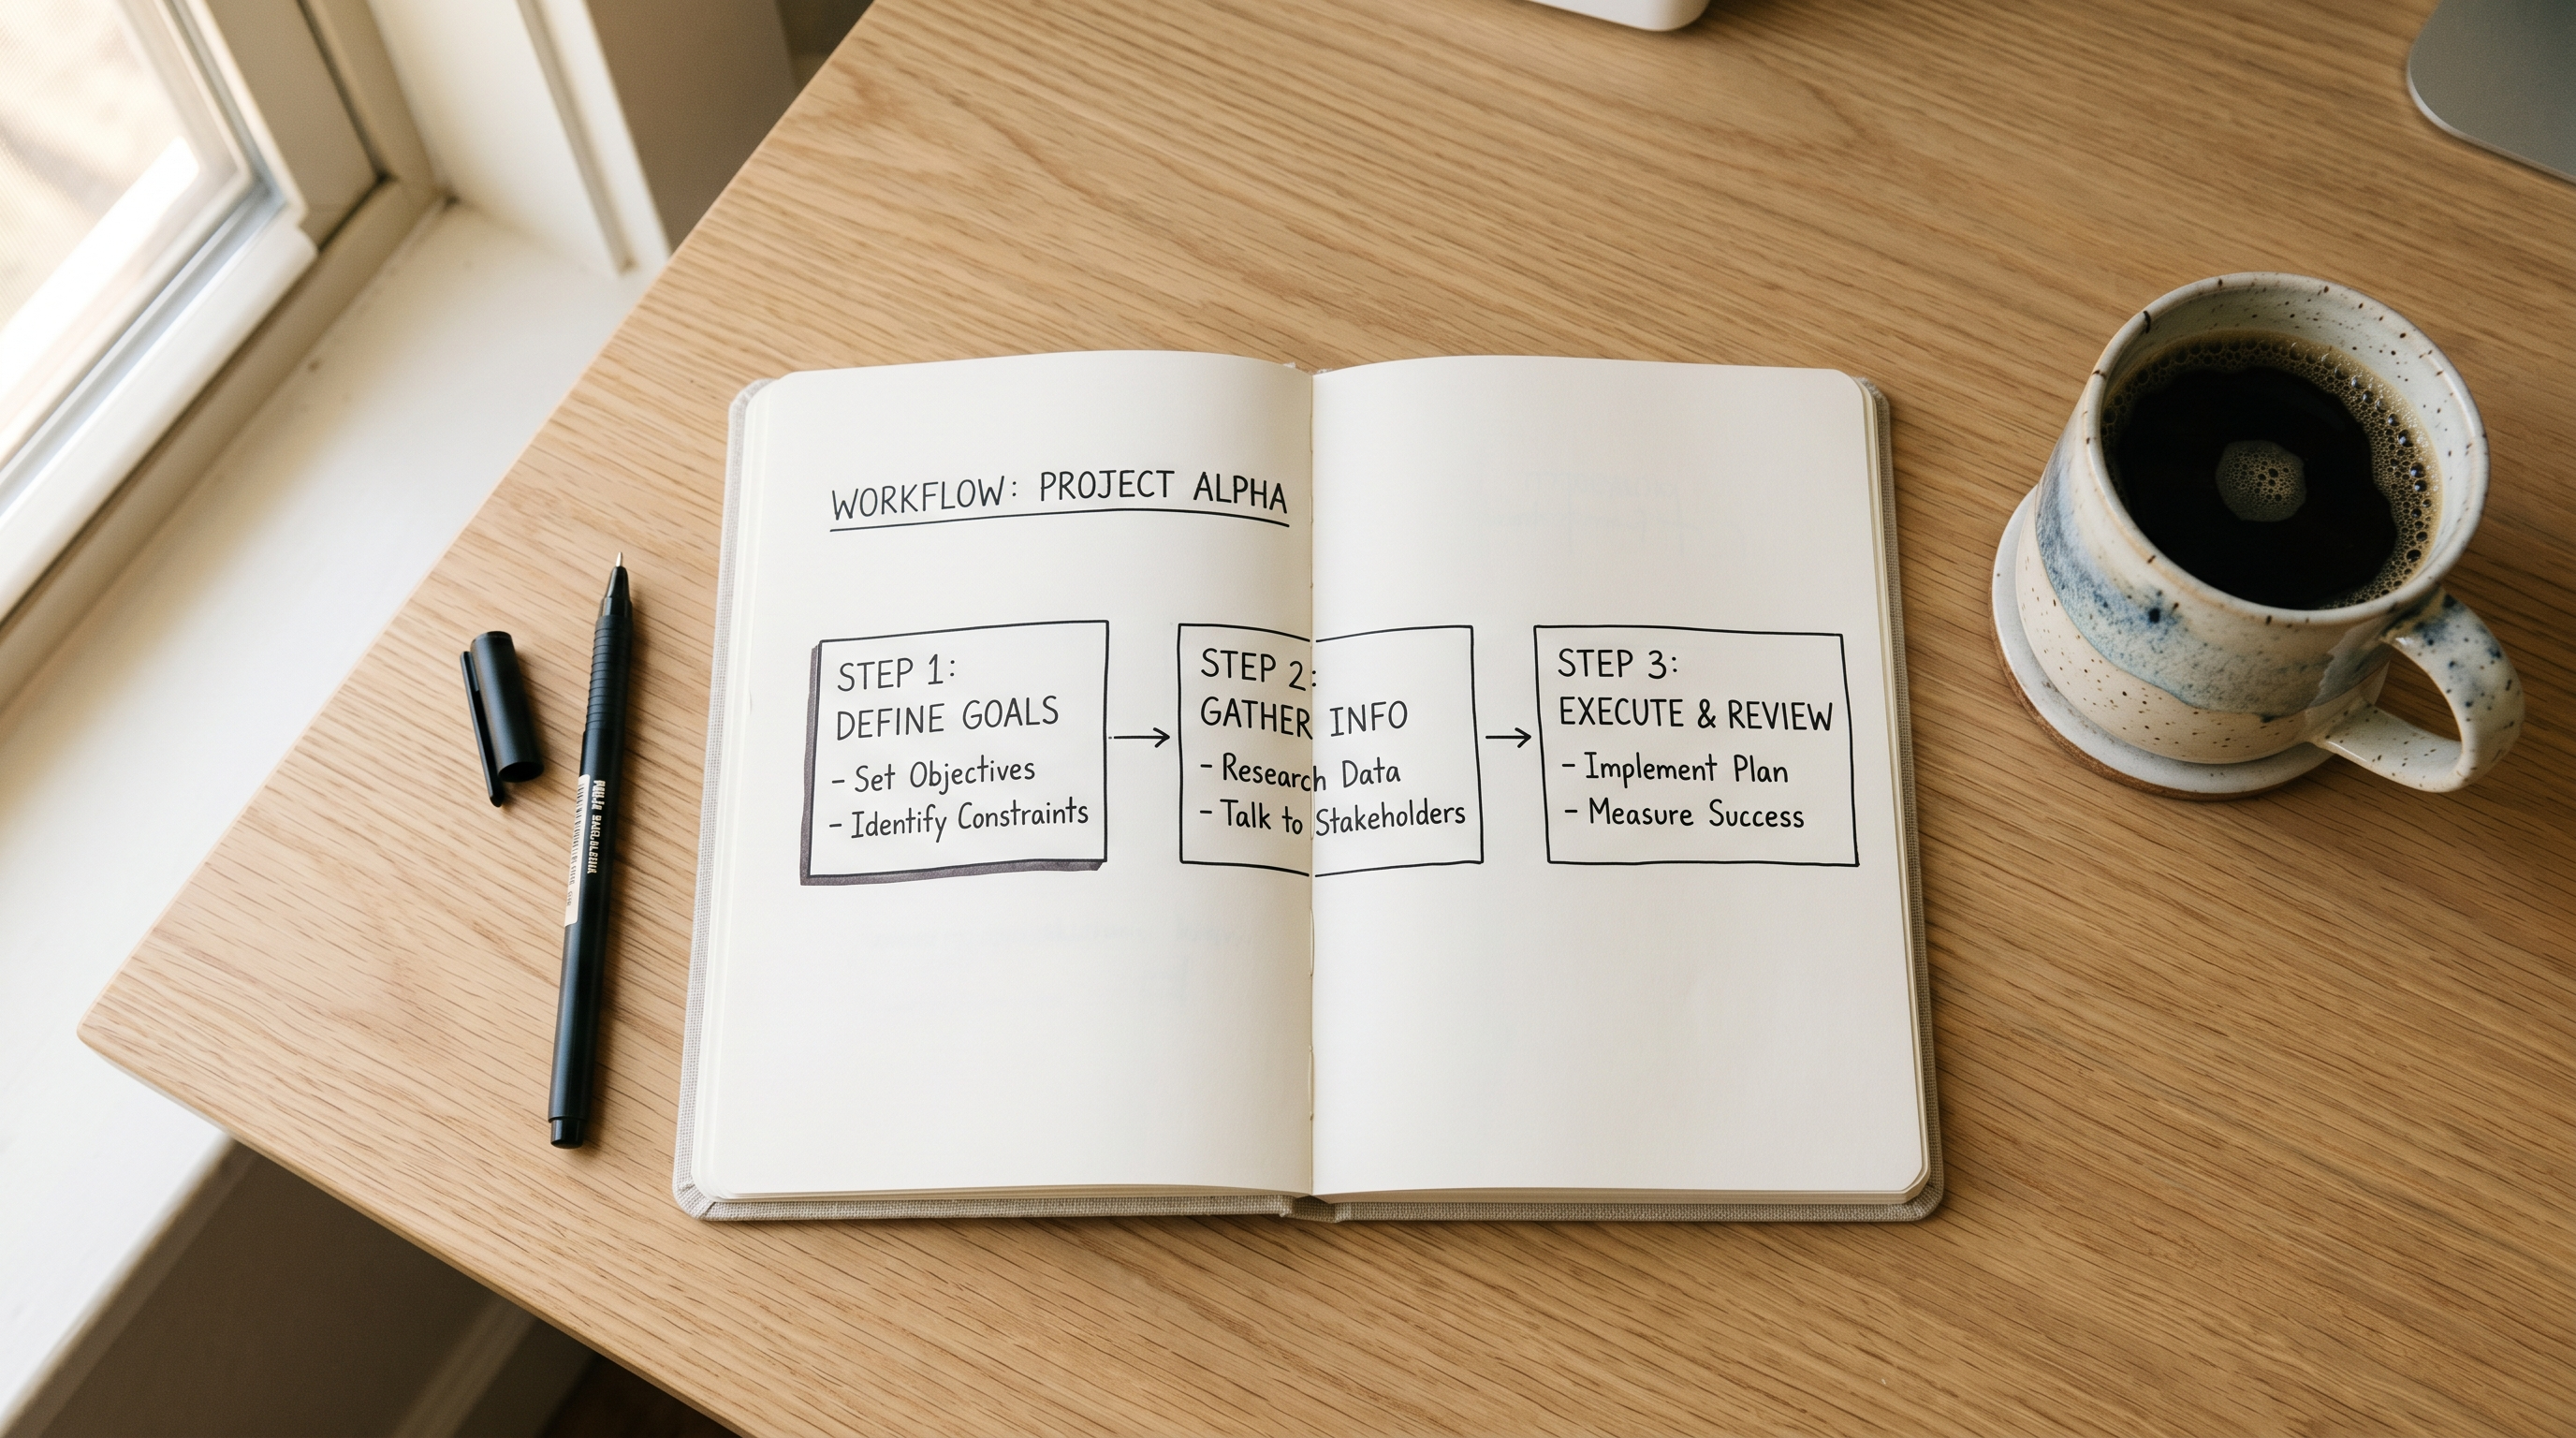 WORKFLOW: PROJECT ALPHA
STEP 1:
DEFINE GOALS
- Set Objectives
- Identify Constraints
STEP 2:
GATHER INFO
- Research Data
- Talk to Stakeholders
STEP 3:
EXECUTE & REVIEW
- Implement Plan
- Measure Success